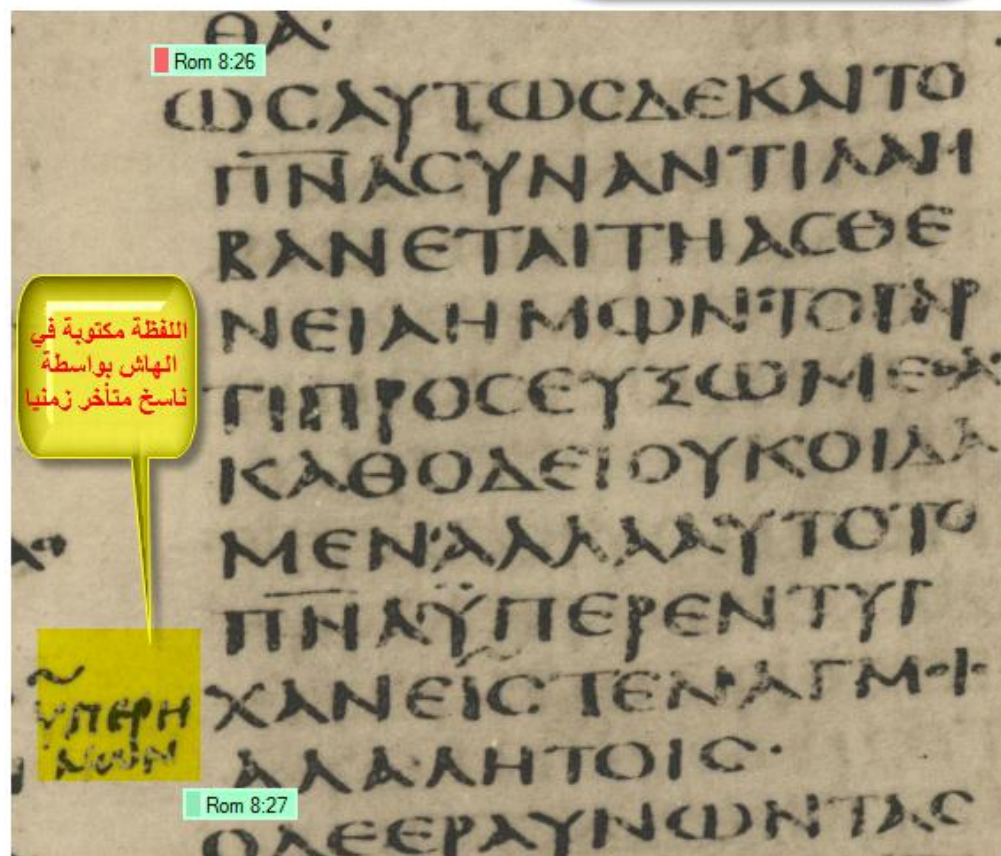 ΘΑ·
Rom 8:26
ΩCΑΥΤΩCΔΕΚΑΙΤΟ
Π̅Ν̅ΑCΥΝΑΝΤΙΛΑΜ
ΒΑΝΕΤΑΙΤΗΑCΘΕ
ΝΕΙΑΗΜΩΝ·ΤΟΓΑΡ
ΤΙΠΡΟCΕΥΞΩΜΕΘΑ
ΚΑΘΟΔΕΙΟΥΚΟΙΔΑ
ΜΕΝ·ΑΛΛΑΑΥΤΟΤΟ
Π̅Ν̅ΑΫΠΕΡΕΝΤΥΓ
ΧΑΝΕΙCΤΕΝΑΓΜΟΙ
ΑΛΑΛΗΤΟΙC·
Rom 8:27
ΟΔΕΕΡΑΥΝΩΝΤΑC
اللفظة مكتوبة في
الهاش بواسطة
ناسخ متأخر زمنيا
ΥΠΕΡΗ
ΜΩΝ